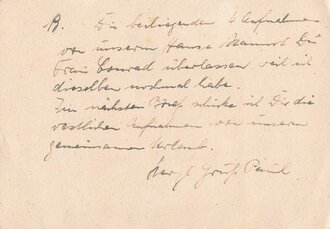 B. Die beiliegenden 6 Aufnahmen
von unserem Hause kannst Du
Frau Conrad überlassen, weil ich
dieselben nochmal habe.
Im nächsten Brief schicke ich Dir die
restlichen Aufnahmen von unserem
gemeinsamen Urlaub.
Herzl. Gruß Paul